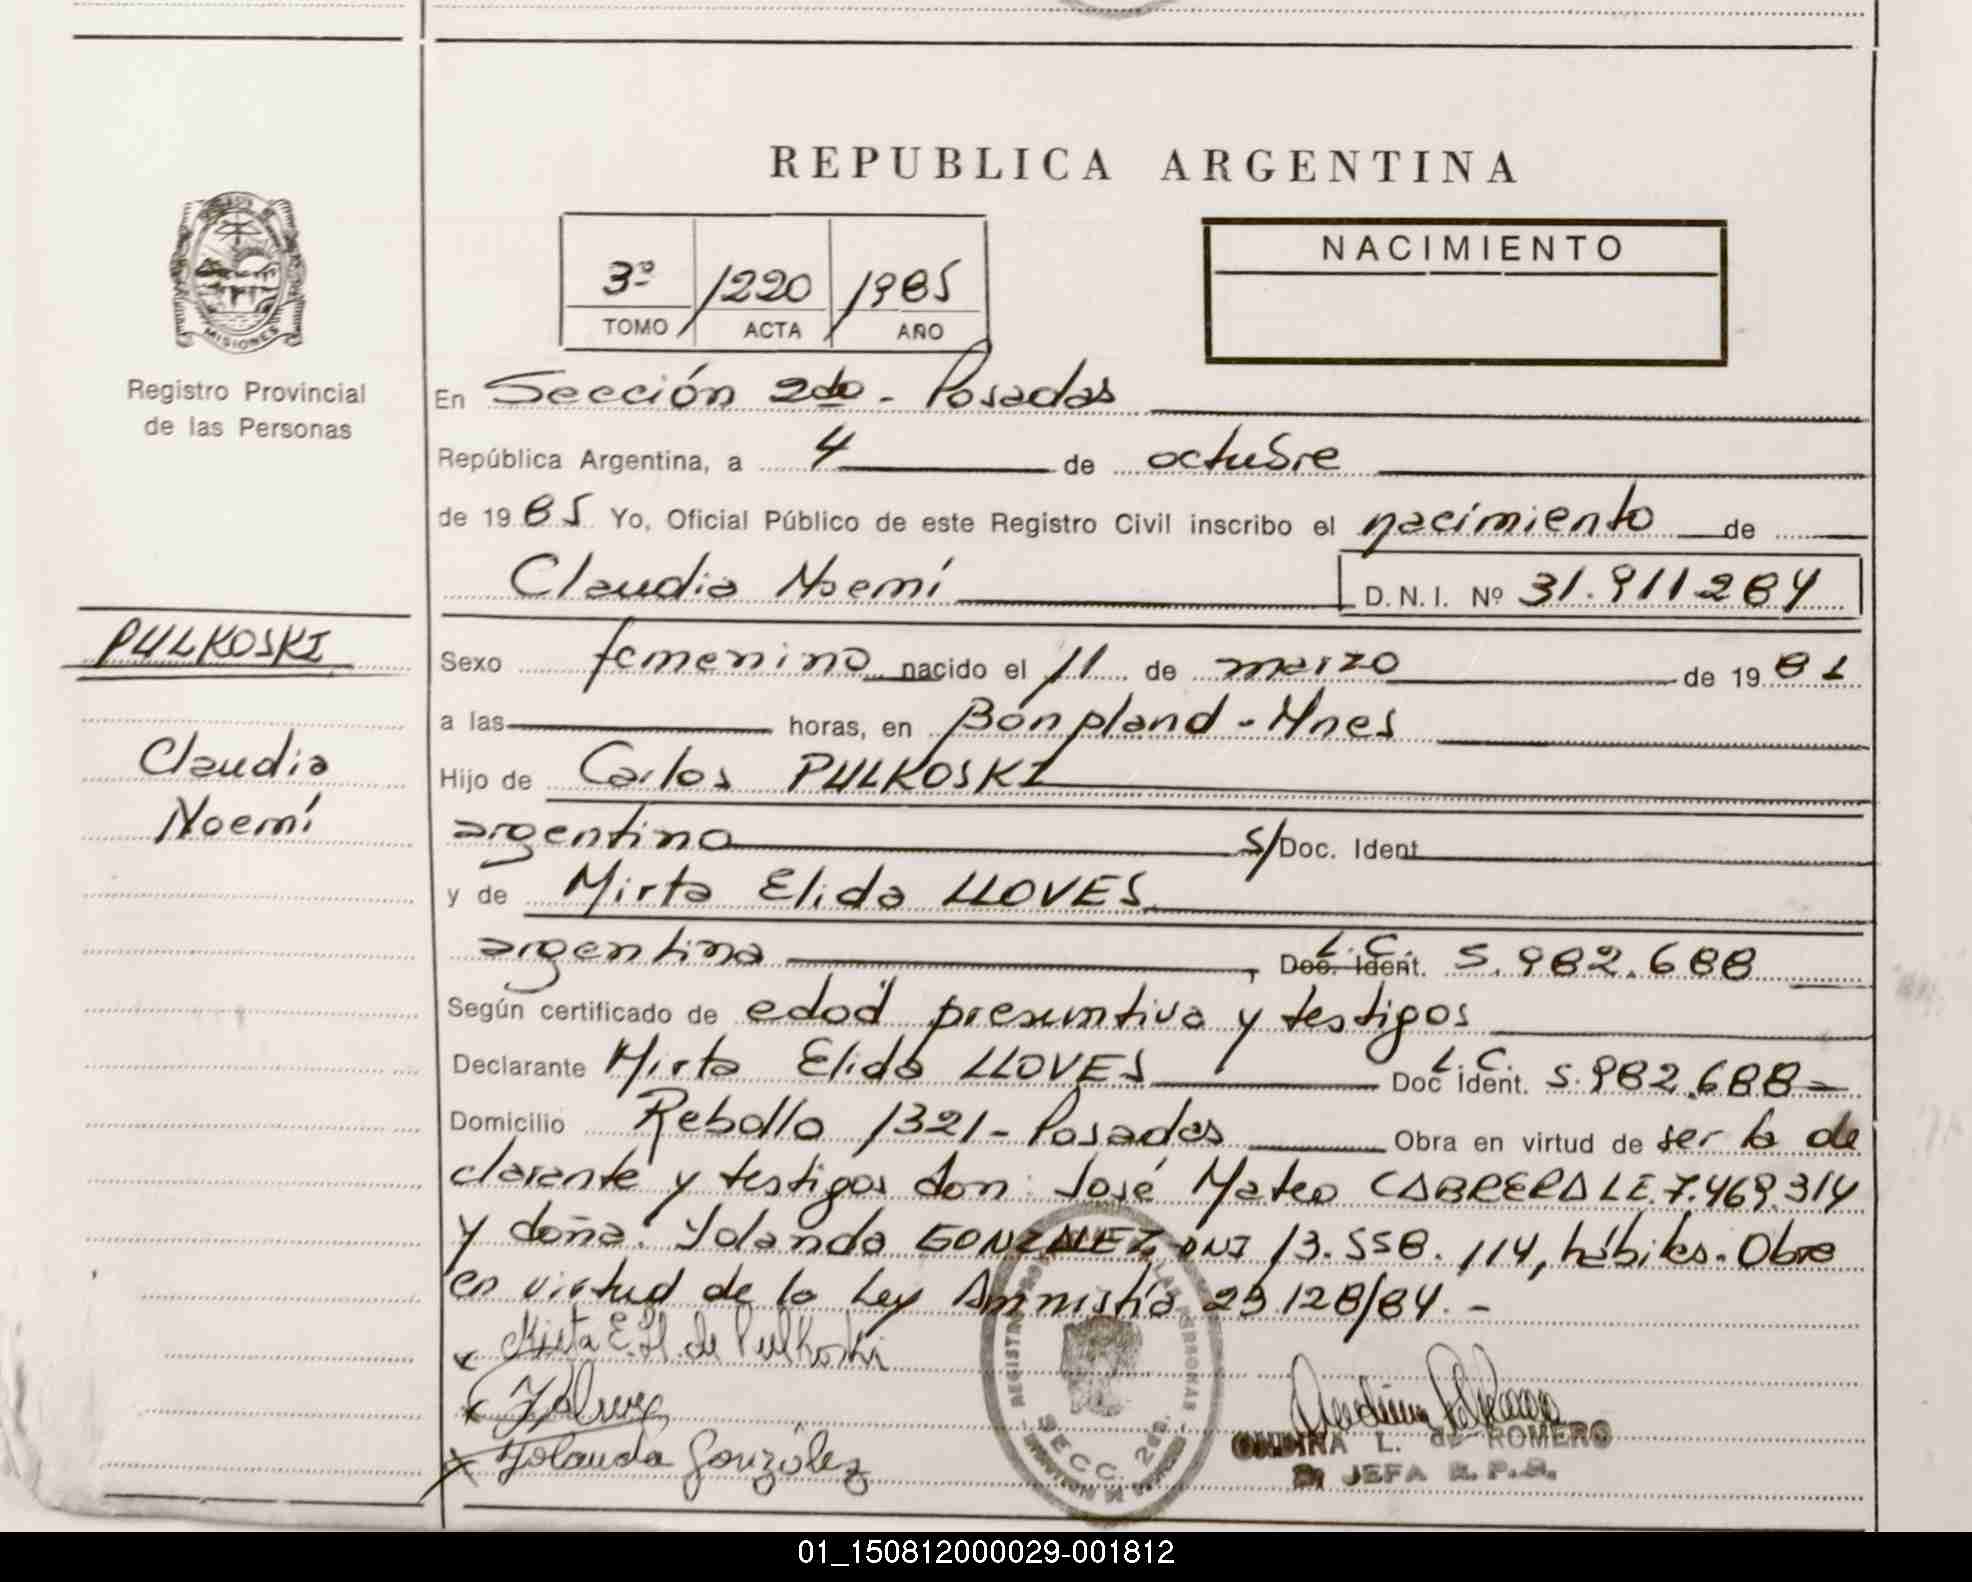 REPUBLICA ARGENTINA
NACIMIENTO
3º /1220 /1985
TOMO ACTA AÑO
MISIONES
Registro Provincial
de las Personas
En Sección 2do - Posadas
República Argentina, a 4 de octubre
de 1985 Yo, Oficial Público de este Registro Civil inscribo el nacimiento de
Claudia Noemí D.N.I. Nº 31.911284
PULKOSKI
Claudia
Noemí
Sexo femenino nacido el 11 de marzo de 1981
a las horas, en Bonpland - Mnes
Hijo de Carlos PULKOSKI
argentino S/Doc. Ident
y de Mirta Elida LLOVES
argentina, L.C. Doc. Ident. 5.982.688
Según certificado de edad presuntiva y testigos
Declarante Mirta Elida LLOVES L.C. Doc Ident. 5.982.688
Domicilio Rebollo 1321 - Posadas Obra en virtud de ser la de
clarante y testigos don José Mateo CABRERA LE. 7.469.314
y doña Yolanda GONZALEZ DNI 13.558.114, hábiles. Obra
en virtud de la Ley Amnistía 23.128/84. -
Mirta E. Ll. de Pulkoski
Yolanda González
SECC. 2da.
L. de ROMERO
JEFA R.P.P.
01_150812000029-001812